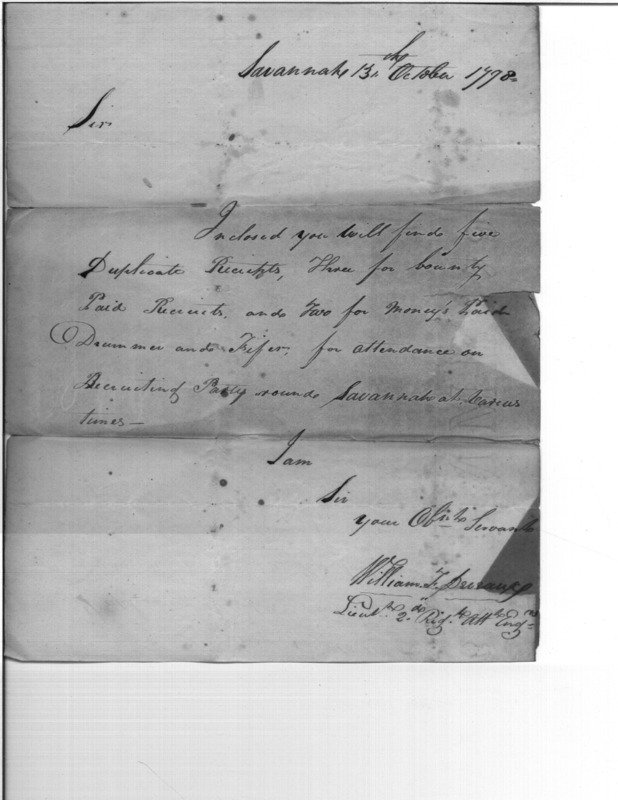 Savannah 13th October 1798
Sir
Inclosed you will find five
Duplicate Receipts, Three for bounty
Paid Recruits, and Two for Money's Paid
Drummer and Fifer, for attendance on
Recruiting Party round Savannah at Various
times —
I am
Sir
your Obt Servant
William
Lieut 2d Regt Art Engrs